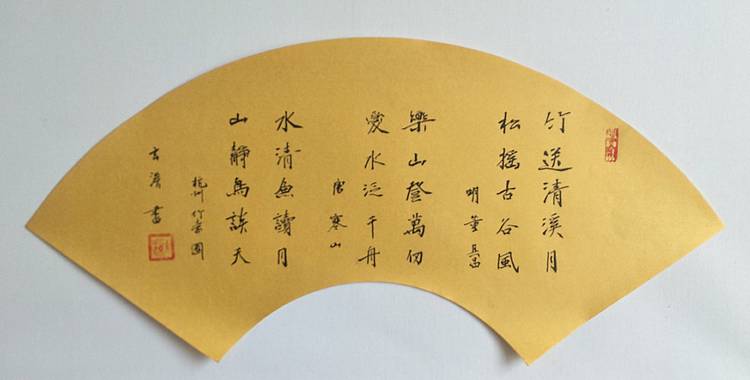 竹送清溪月
松摇古谷風
明 董其昌
樂山登萬仞
愛水泛千舟
唐 寒山
水清魚讀月
山靜鳥談天
杭州竹素園
書